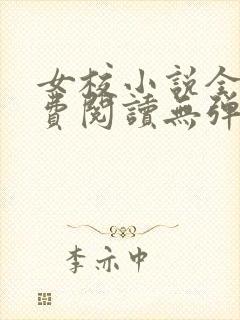 女校小说全
費閱讀無彈
李亦中